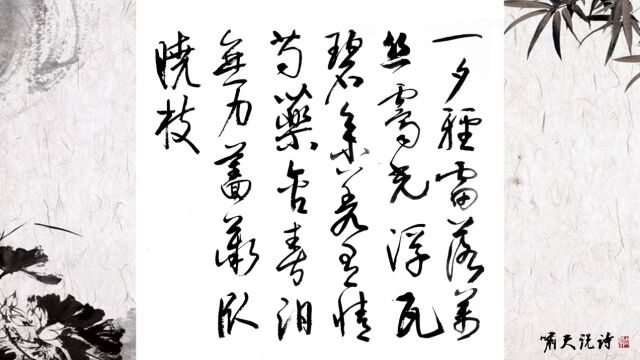 一夕輕雷落萬
丝霽光浮瓦
碧參差有情
芍藥含春泪
無力薔薇卧
曉枝
嘯天说诗